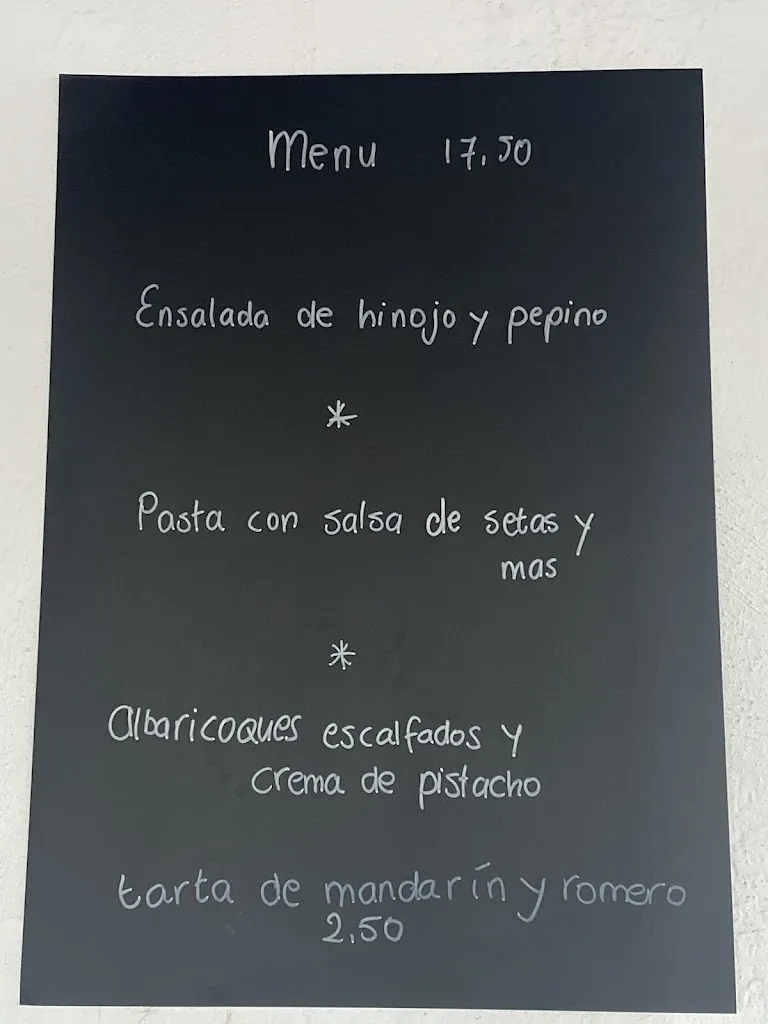 Menu 17.50
Ensalada de hinojo y pepino
*
Pasta con salsa de setas y
mas
*
Albaricoques escalfados y
crema de pistacho
tarta de mandarín y romero
2.50